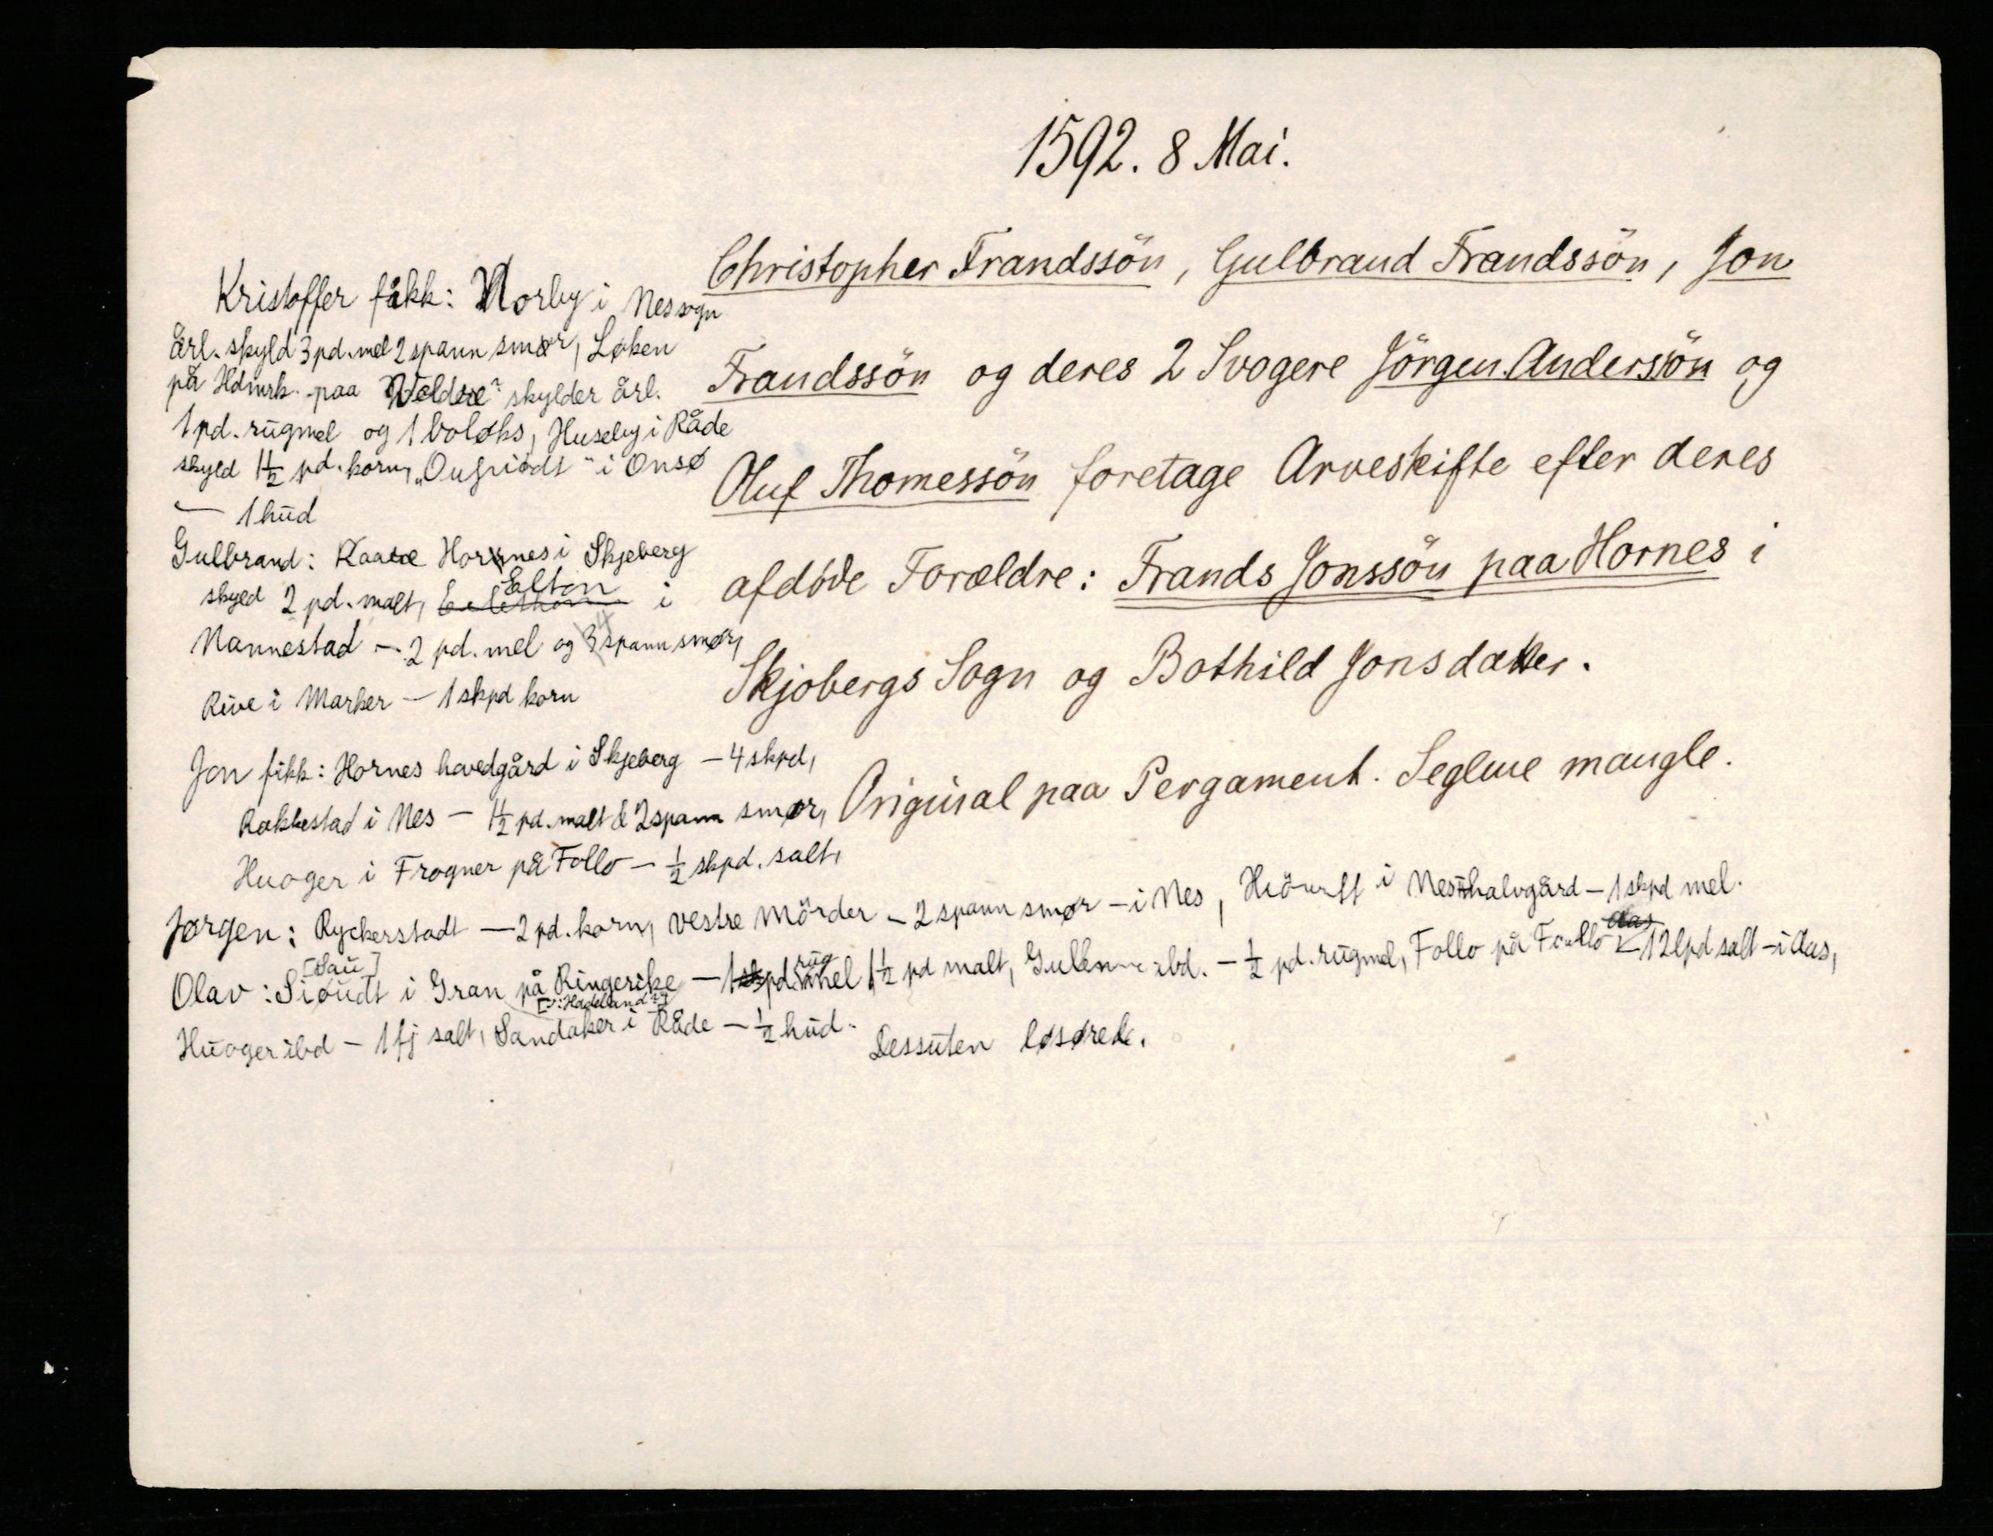 1592. 8 Mai.
Christopher Frandssön, Gulbrand Frandssön, Jon
Frandssön og deres 2 Svogere Jörgen Anderssön og
Oluf Thomessön foretage Arveskifte efter deres
afdøde Forældre: Frands Jonssön paa Hornes i
Skjøbergs Sogn og Bothild Jonsdatter.
Original paa Pergament. Seglene mangle.
Kristoffer fikk: Norby i Nes sogn
årl. skyld 3 pd. mel 2 spann smør, Løken
på Hdmrk. paa Weldre" skylder årl.
1 pd. rugmel og 1 boloks, Huseby i Råde
skyld 1½ pd. korn, i Onsø
— 1 hud
Gulbrand: Hornes i Skjeberg
skyld 2 pd. malt, Elton i
Nannestad — 2 pd. mel og 4 spann smør,
Rive i Marker — 1 skpd korn
Jon fikk: Hornes hovedgård i Skjeberg — 4 skpd,
Rakkestad i Nes — 1½ pd. malt & 2 spann smør,
Huoger i Frogner på Follo — ½ skpd. salt,
Jørgen: Ryckerstadt — 2 pd. korn, vestre Mörder — 2 spann smør — i Nes, i Nes halvgård — 1 skpd mel.
Olav: Sioudt [Sau] i Gran på Ringerike [ɔ: Hadeland?] — 1 pd. rugmel 1½ pd malt, ibd. — ½ pd. rugmel, Follo på Follo — 12 lpd salt — i Aas,
Huoger ibd — 1 fj salt, Sandaker i Råde — ½ hud.
Dessuten løsøre